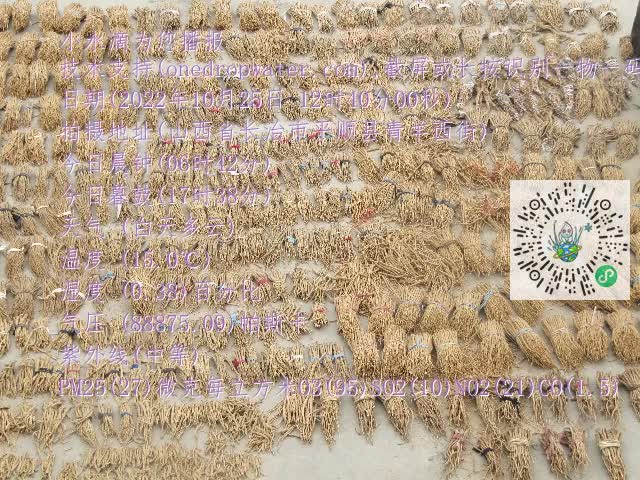 小水滴为您播报
技术支持(onedropwater.com),截屏或长按识别一物一码
日期(2022年10月25日 12时10分00秒)
拍摄地址(山西省长治市平顺县青羊西街)
今日晨钟(06时42分)
今日暮鼓(17时38分)
天气 (白天多云)
温度 (15.0℃)
湿度 (0.38)百分比
气压 (88875.09)帕斯卡
紫外线(中等)
PM25(27)微克每立方米O3(95)SO2(10)NO2(21)CO(1.5)